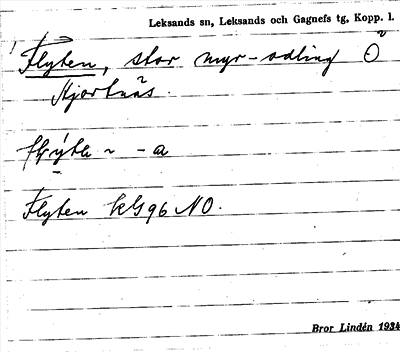 Leksands sn, Leksands och Gagnefs tg, Kopp. l.
Flyten, stor myr-odling Ö
Hjortnäs.
Flyten kG96 NO.
Bror Lindén 1934